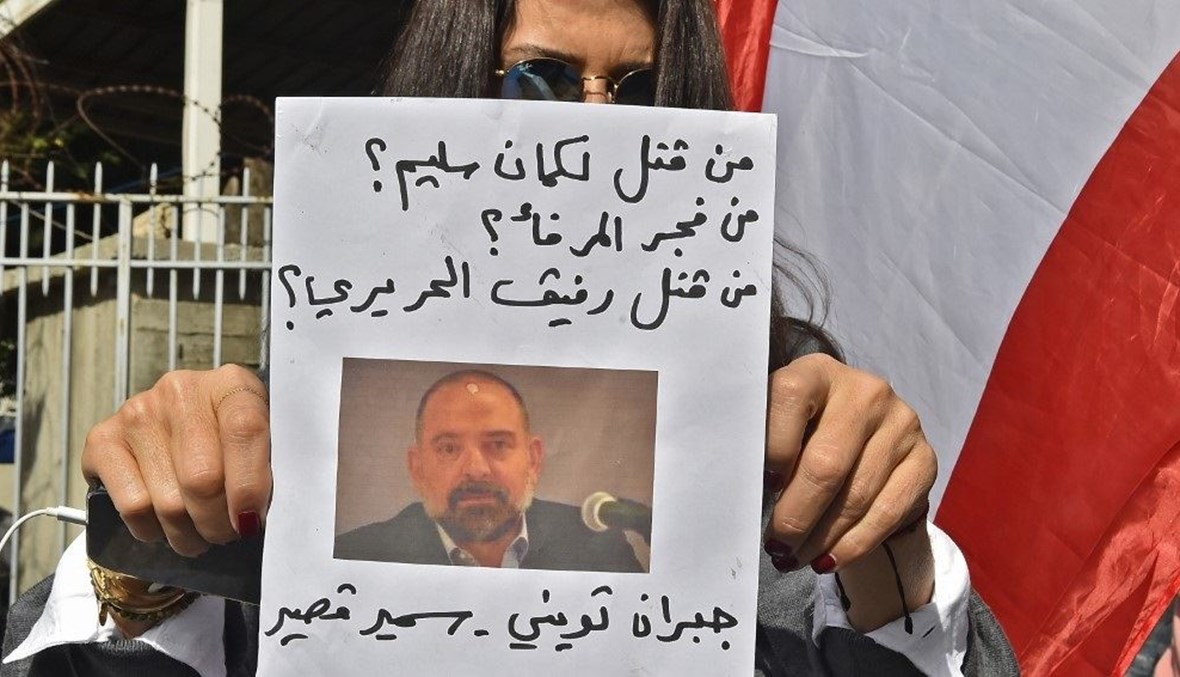 من قتل لقمان سليم؟
من فجر المرفأ؟
من قتل رفيق الحريري؟
جبران تويني - سمير قصير